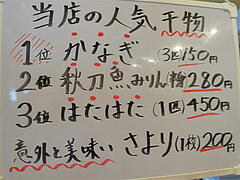 当店の人気干物
1位 かなぎ (3匹)150円
2位 秋刀魚みりん粉280円
3位 はたはた(1匹)450円
意外と美味い さより(1枚)200円